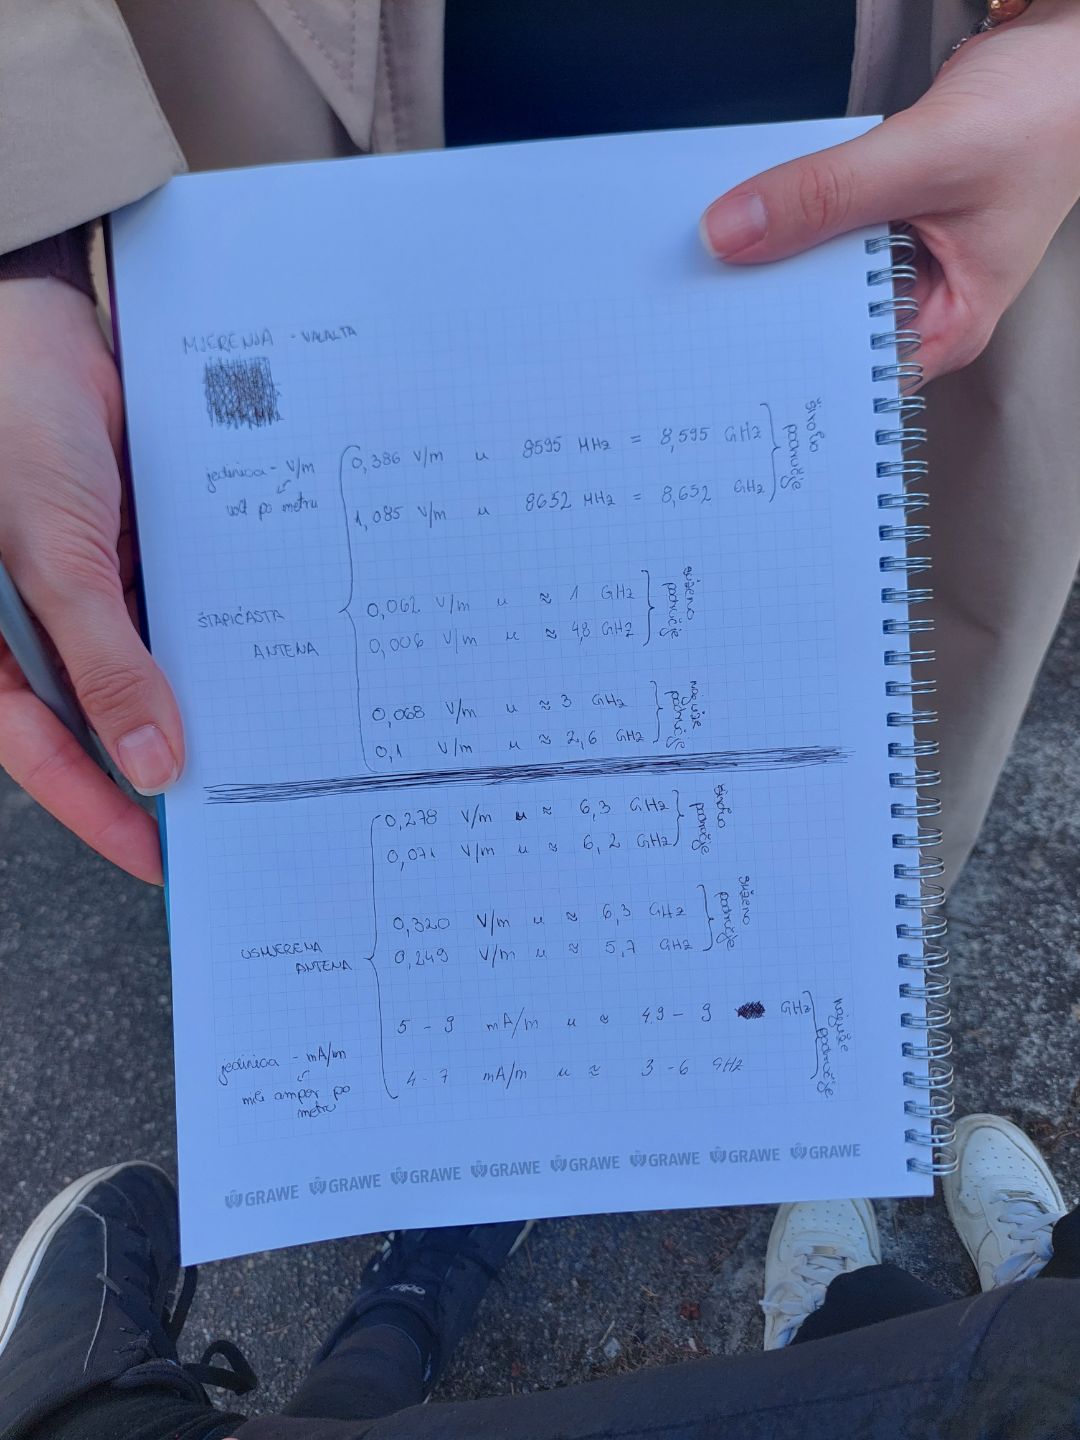 MJERENJA - VALALTA
jedinica - V/m
volt po metru
0,386 V/m u 8595 MHz = 8,595 GHz
1,085 V/m u 8652 MHz = 8,652 GHz
široko područje
ŠTAPIĆASTA
ANTENA
0,062 V/m u ≈ 1 GHz
0,006 V/m u ≈ 4,8 GHz
suženo područje
0,068 V/m u ≈ 3 GHz
0,1 V/m u ≈ 2,6 GHz
najuže područje
0,278 V/m u ≈ 6,3 GHz
0,071 V/m u ≈ 6,2 GHz
široko područje
USMJERENA
ANTENA
0,320 V/m u ≈ 6,3 GHz
0,249 V/m u ≈ 5,7 GHz
suženo područje
5 - 9 mA/m u ≈ 4,9 - 9 GHz
4 - 7 mA/m u ≈ 3 - 6 GHz
najuže područje
jedinica - mA/m
mili amper po
metru
GRAWE GRAWE GRAWE GRAWE GRAWE GRAWE GRAWE GRAWE